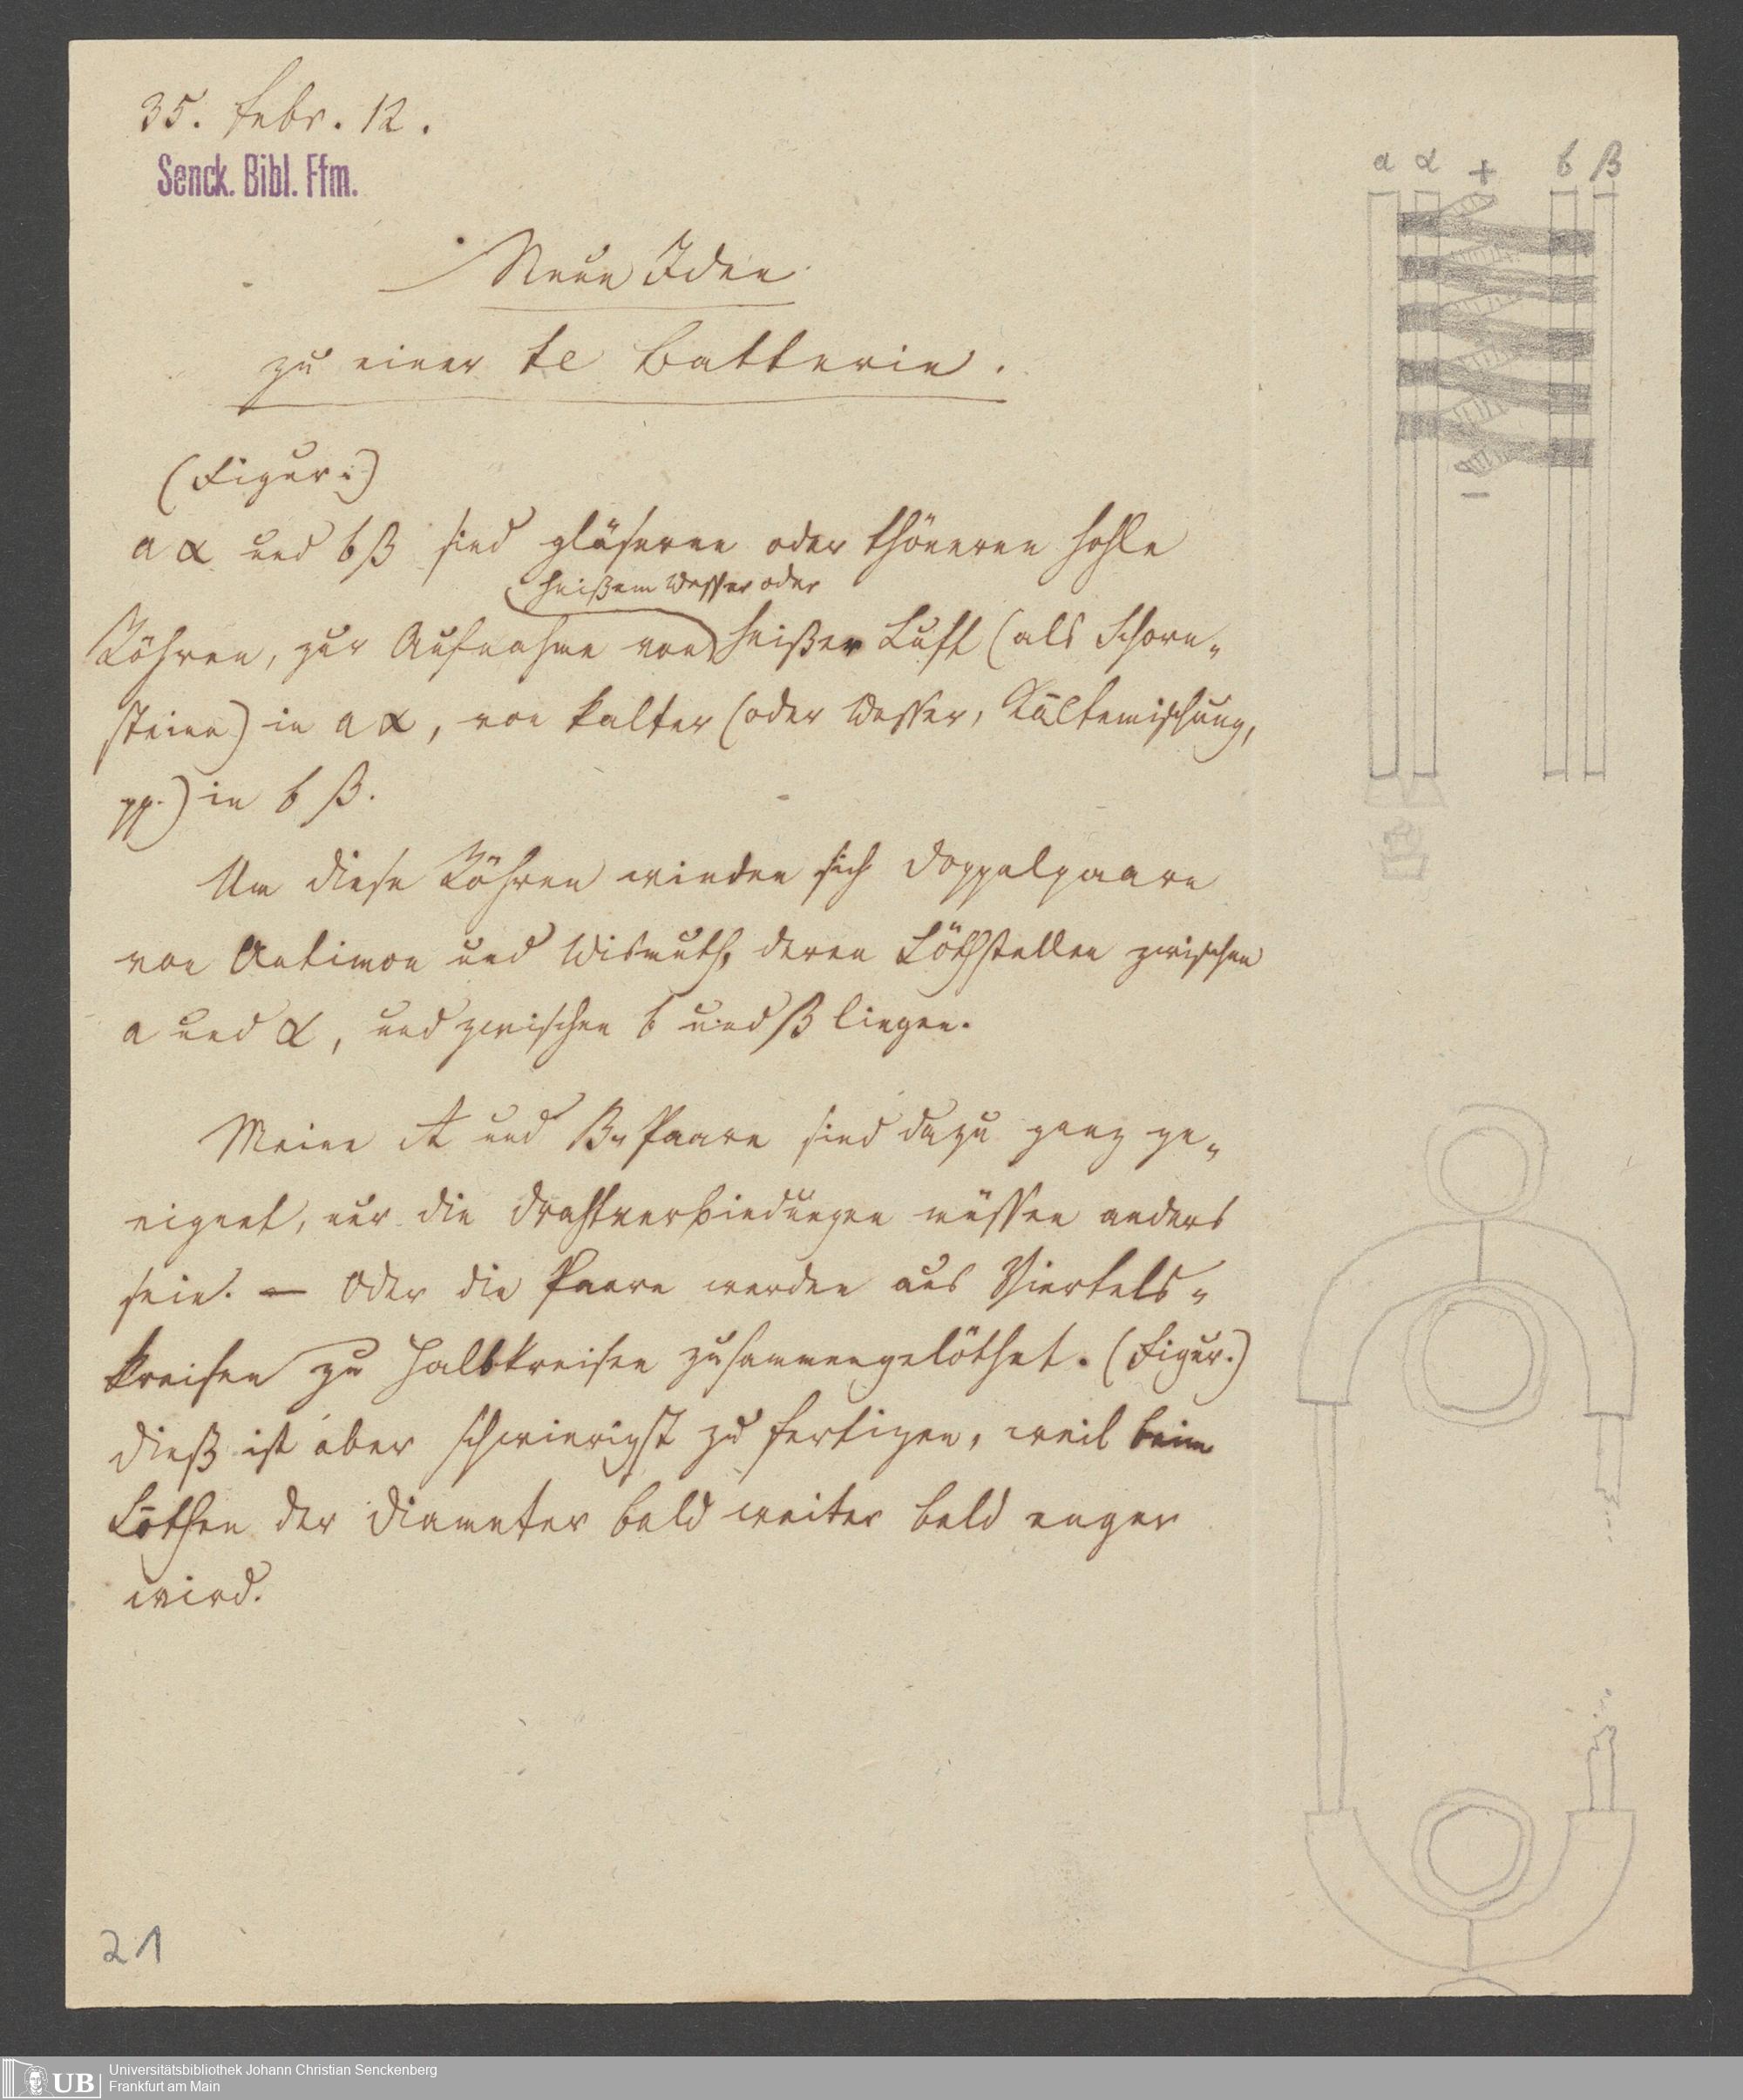 35. Febr. 12.
Senck. Bibl. Ffm.
a α + b β
Neue Idee
zu einer te Batterie.
(Figur:)
a α und b β sind gläserne oder thönerne hohle
heißem Wasser oder
Röhren, zur Aufnahme von heißer Luft (als Schorn-
steine) in a α, von kalter (oder Wasser, Kältemischung,
pp.) in b β.
Um diese Röhren winden sich Doppelpaare
von Antimon und Wismuth, deren Löthstellen zwischen
a und α, und zwischen b und β liegen.
Meine A und B-Paare sind dazu ganz ge-
eignet, nur die Drahtverbindungen müssen anders
sein. — Oder die Paare werden aus Viertels-
kreisen zu Halbkreisen zusammengelöthet. (Figur.)
Dieß ist aber schwierigst zu fertigen, weil beim
Löthen der Diameter bald weiter bald enger
wird.
21
UB
Universitätsbibliothek Johann Christian Senckenberg
Frankfurt am Main